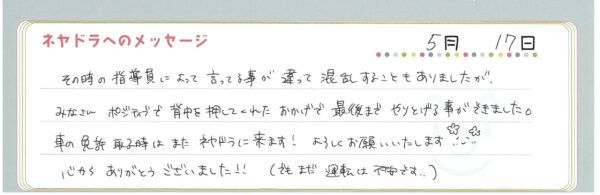 ネヤドラへのメッセージ
5月 17日
その時の指導員によって言ってる事が違って混乱することもありましたが、
みなさんポジティブで背中を押してくれたおかげで最後までやりとげる事ができました。
車の免許取る時はまたネヤドラに来ます!よろしくお願いいたします
心からありがとうございました!!(でもまだ運転は不安です..)